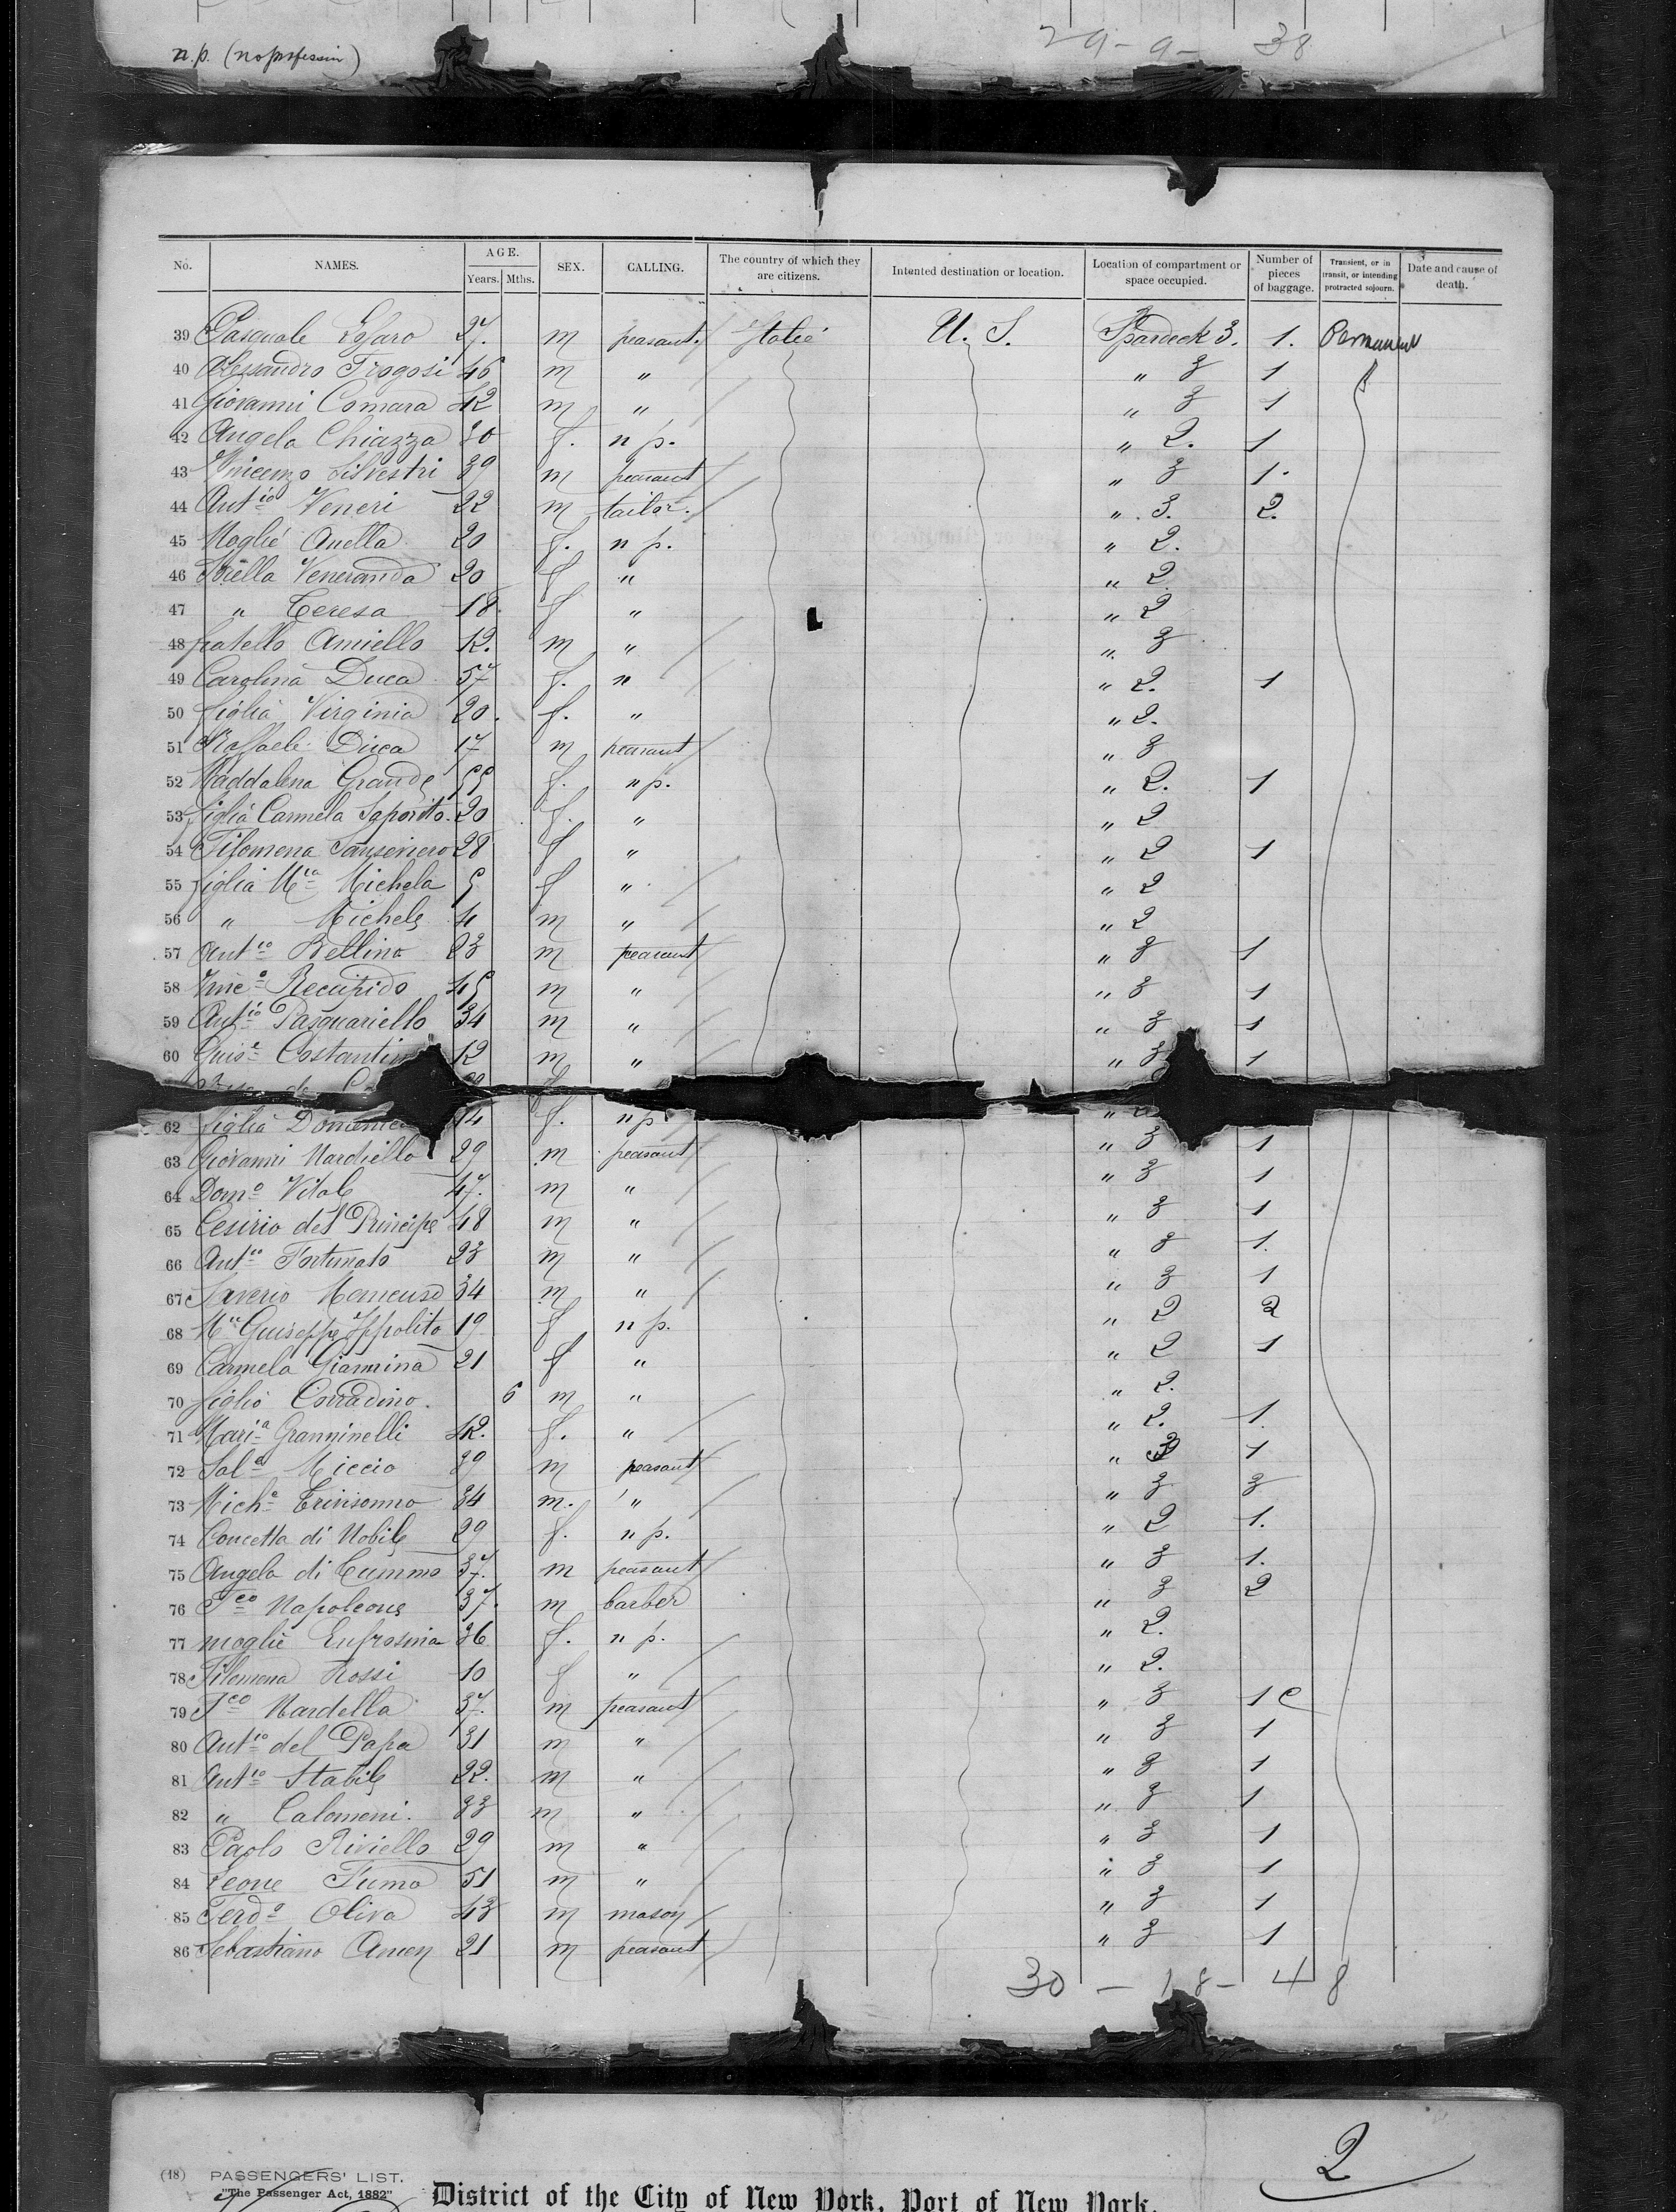 n.p. (no profession) 29 - 9 - 38
No. NAMES. AGE. Years. Mths. SEX. CALLING. The country of which they are citizens. Intented destination or location. Location of compartment or space occupied. Number of pieces of baggage. Transient, or in transit, or intending protracted sojourn. Date and cause of death.
39 Pasquale 27. m peasant. Italie U. S. Spardeck 3. 1. Permanent
40 Alessandro Frogosi 46 m " " 3 1
41 Giovanni Comara 42 m " " 3 1
42 Angela Chiazza 30 f. n p. " 2. 1
43 Vincenzo Silvestri 39 m peasant " 3 1.
44 Antio Veneri 22 m tailor. " 3. 2.
45 Moglie Anella 20 f. n p. " 2.
46 Veneranda 20 f " " 2
47 " Teresa 18 f " " 2
48 fratello Amiello 12. m " " 3
49 Carolina Duca 57 f. " " 2. 1
50 figlia Virginia 20. f. " " 2.
51 Raffaele Duca 17 m peasant " 3
52 Maddalena Grande 55 f. n p. " 2. 1
53 figlia Carmela Saporito. 20 f. " " 2
54 Filomena Sanseviero 28 f " " 2 1
55 figlia Mia Michela 5 f " " 2
56 " Michele 4 m " " 2
57 Antio Bellino 23 m peasant " 3 1
58 Vinco Recupido 45 m " " 3 1
59 Antio Pasquariello 34 m " " 3 1
60 Guise Costantin 12 m " " 3 1
62 figlia Domenic 14 f. n p. " 2
63 Giovanni Nardiello 29 m peasant " 3 1
64 Domo Vitale 47. m " " 3 1
65 Cesirio del Principe 48 m " " 3 1
66 Antio Fortunato 23 m " " 3 1.
67 Saverio Mancuso 34 m " " 3 1
68 Mia Guiseppe Ippolito 19 f n p. " 2 2
69 Carmela Giannina 21 f " " 2 1
70 figlio Corradino. 6 m " " 2.
71 Maria Granninelli 42. f. " " 2. 1.
72 Sale Miccio 39 m peasant " 3 1
73 Miche Trivisonno 34 m. " " 3 3
74 Concetta di Nobile 29 f. n p. " 2 1.
75 Angelo di Cummo 37. m peasant " 3 1.
76 Fco Napoleone 37. m barber " 3 2
77 moglie Eufrosina 36 f. n p. " 2.
78 Filomena Rossi 10 f " " 2.
79 Fco Nardella 37. m peasant " 3 1
80 Antio del Papa 31 m " " 3 1
81 Antio Stabile 22. m " " 3 1
82 " Calomeni. 33 m " " 3 1
83 Paolo Riviello 29 m " " 3 1
84 Leone Fuma 51 m " " 3 1
85 Ferdo Oliva 43 m mason " 3 1
86 Sebastiano 21 m peasant " 3 1
30 - 18 - 48
2
(18) PASSENGERS' LIST.
"The Passenger Act, 1882" District of the City of New York, Port of New York.